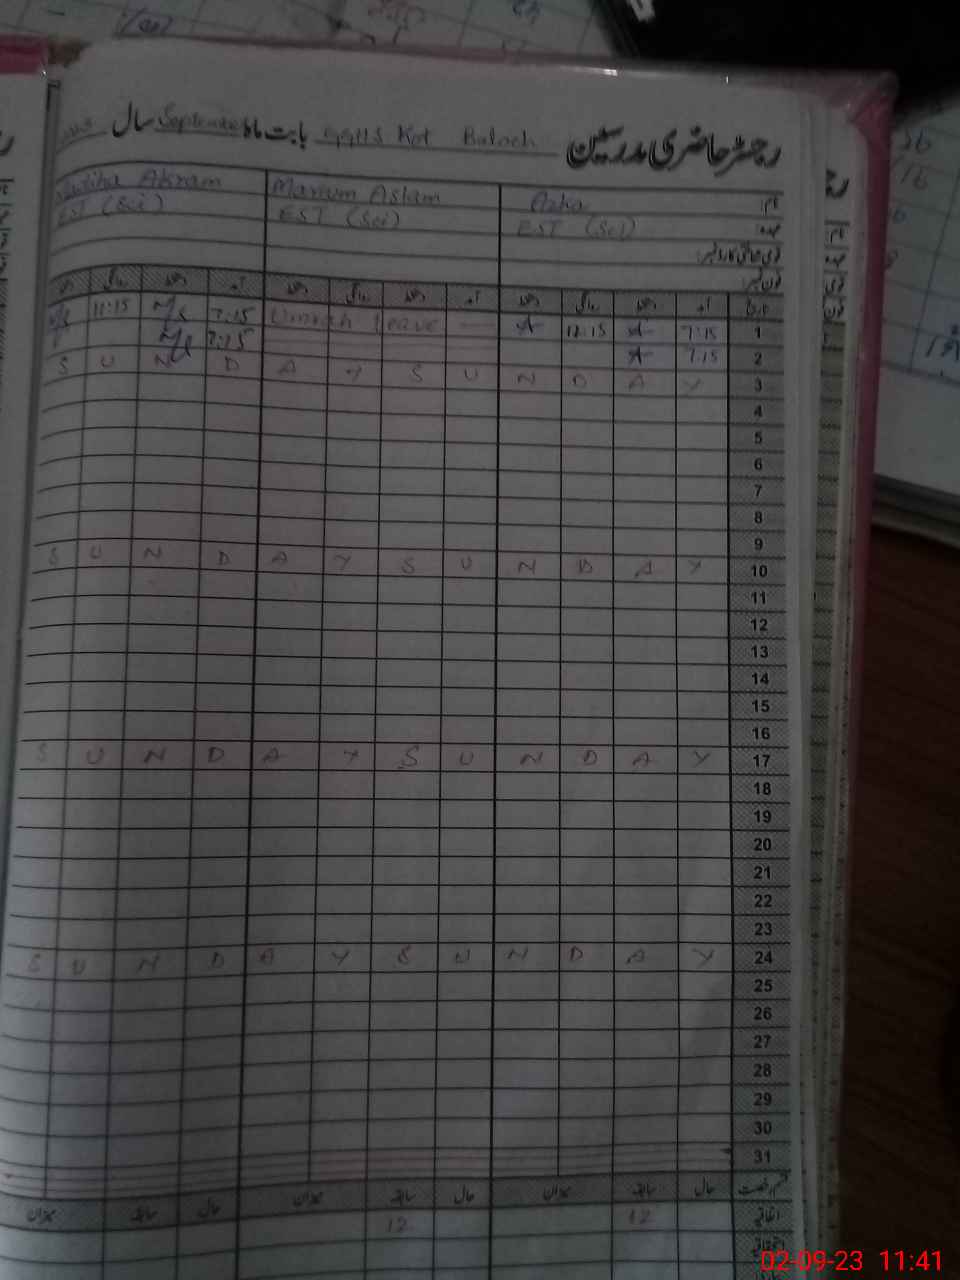 رجسٹر حاضری مدرسین GGHS Kot Baloch بابت ماہ September سال
Azka Marium Aslam Akram
EST (Sci) EST (Sci) EST (Sci)
قومی شناختی کارڈ نمبر:
فون نمبر:
تاریخ آمد دستخط روانگی دستخط آمد دستخط روانگی دستخط آمد دستخط روانگی
11:15 7:15 Umrah leave 11:15 7:15 1
7:15 7:15 2
S U N D A Y S U N D A Y 3
4
5
6
7
8
9
S U N D A Y S U N D A Y 10
11
12
13
14
15
16
S U N D A Y S U N D A Y 17
18
19
20
21
22
23
S U N D A Y S U N D A Y 24
25
26
27
28
29
30
31
قسم رخصت حال سابقہ میزان حال سابقہ میزان حال سابقہ میزان
اتفاقیہ 12 12
02-09-23 11:41